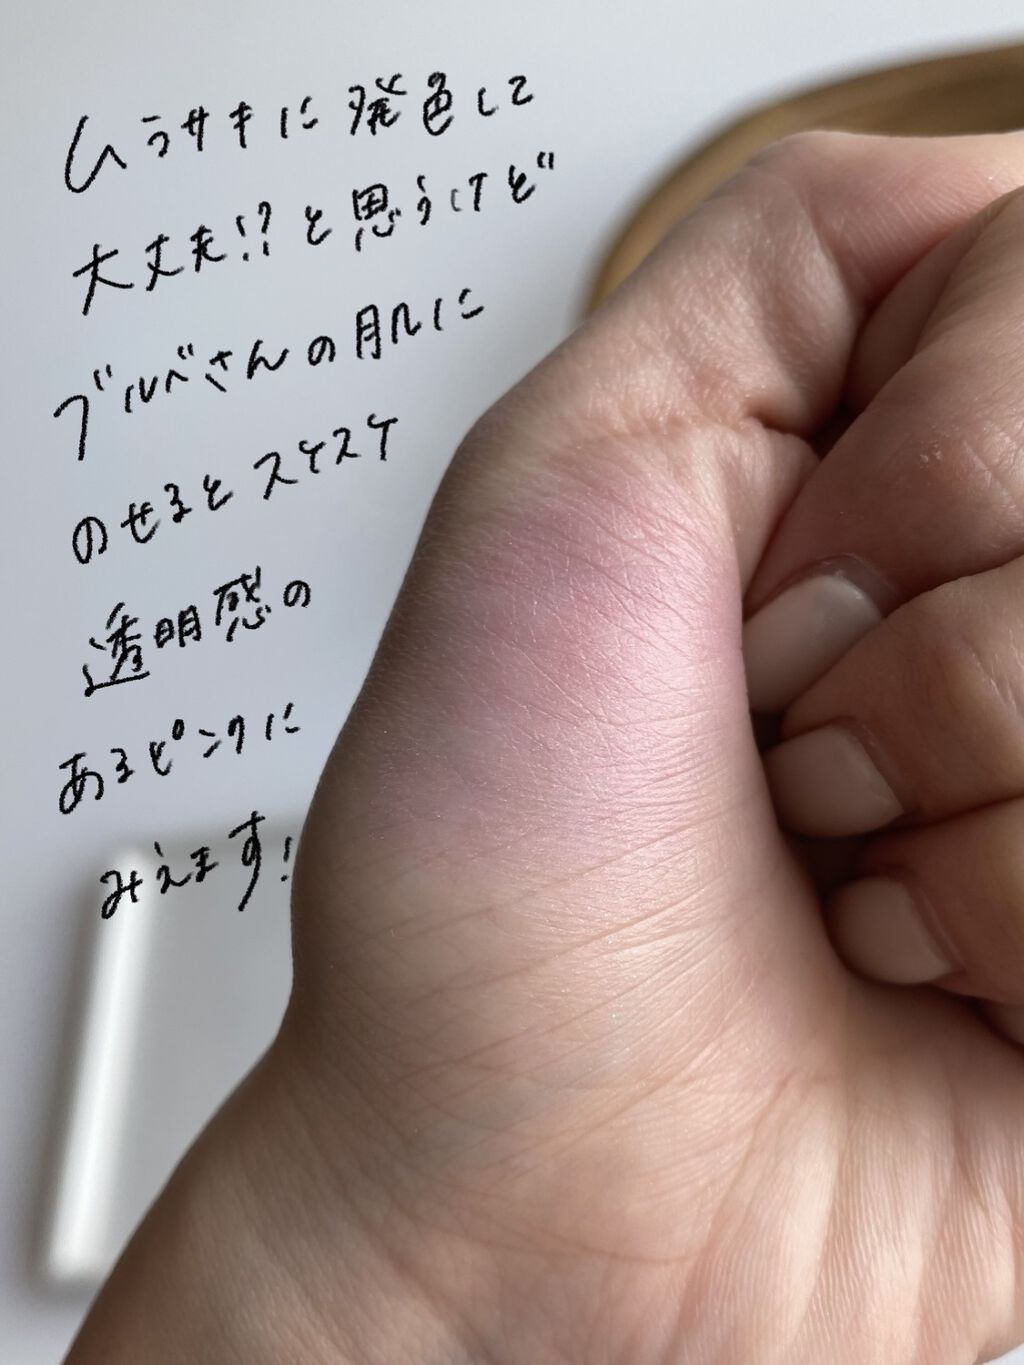 ムラサキに発色して
大丈夫!?と思うけど
ブルベさんの肌に
のせるとスケスケ
透明感の
あるピンクに
みえます!